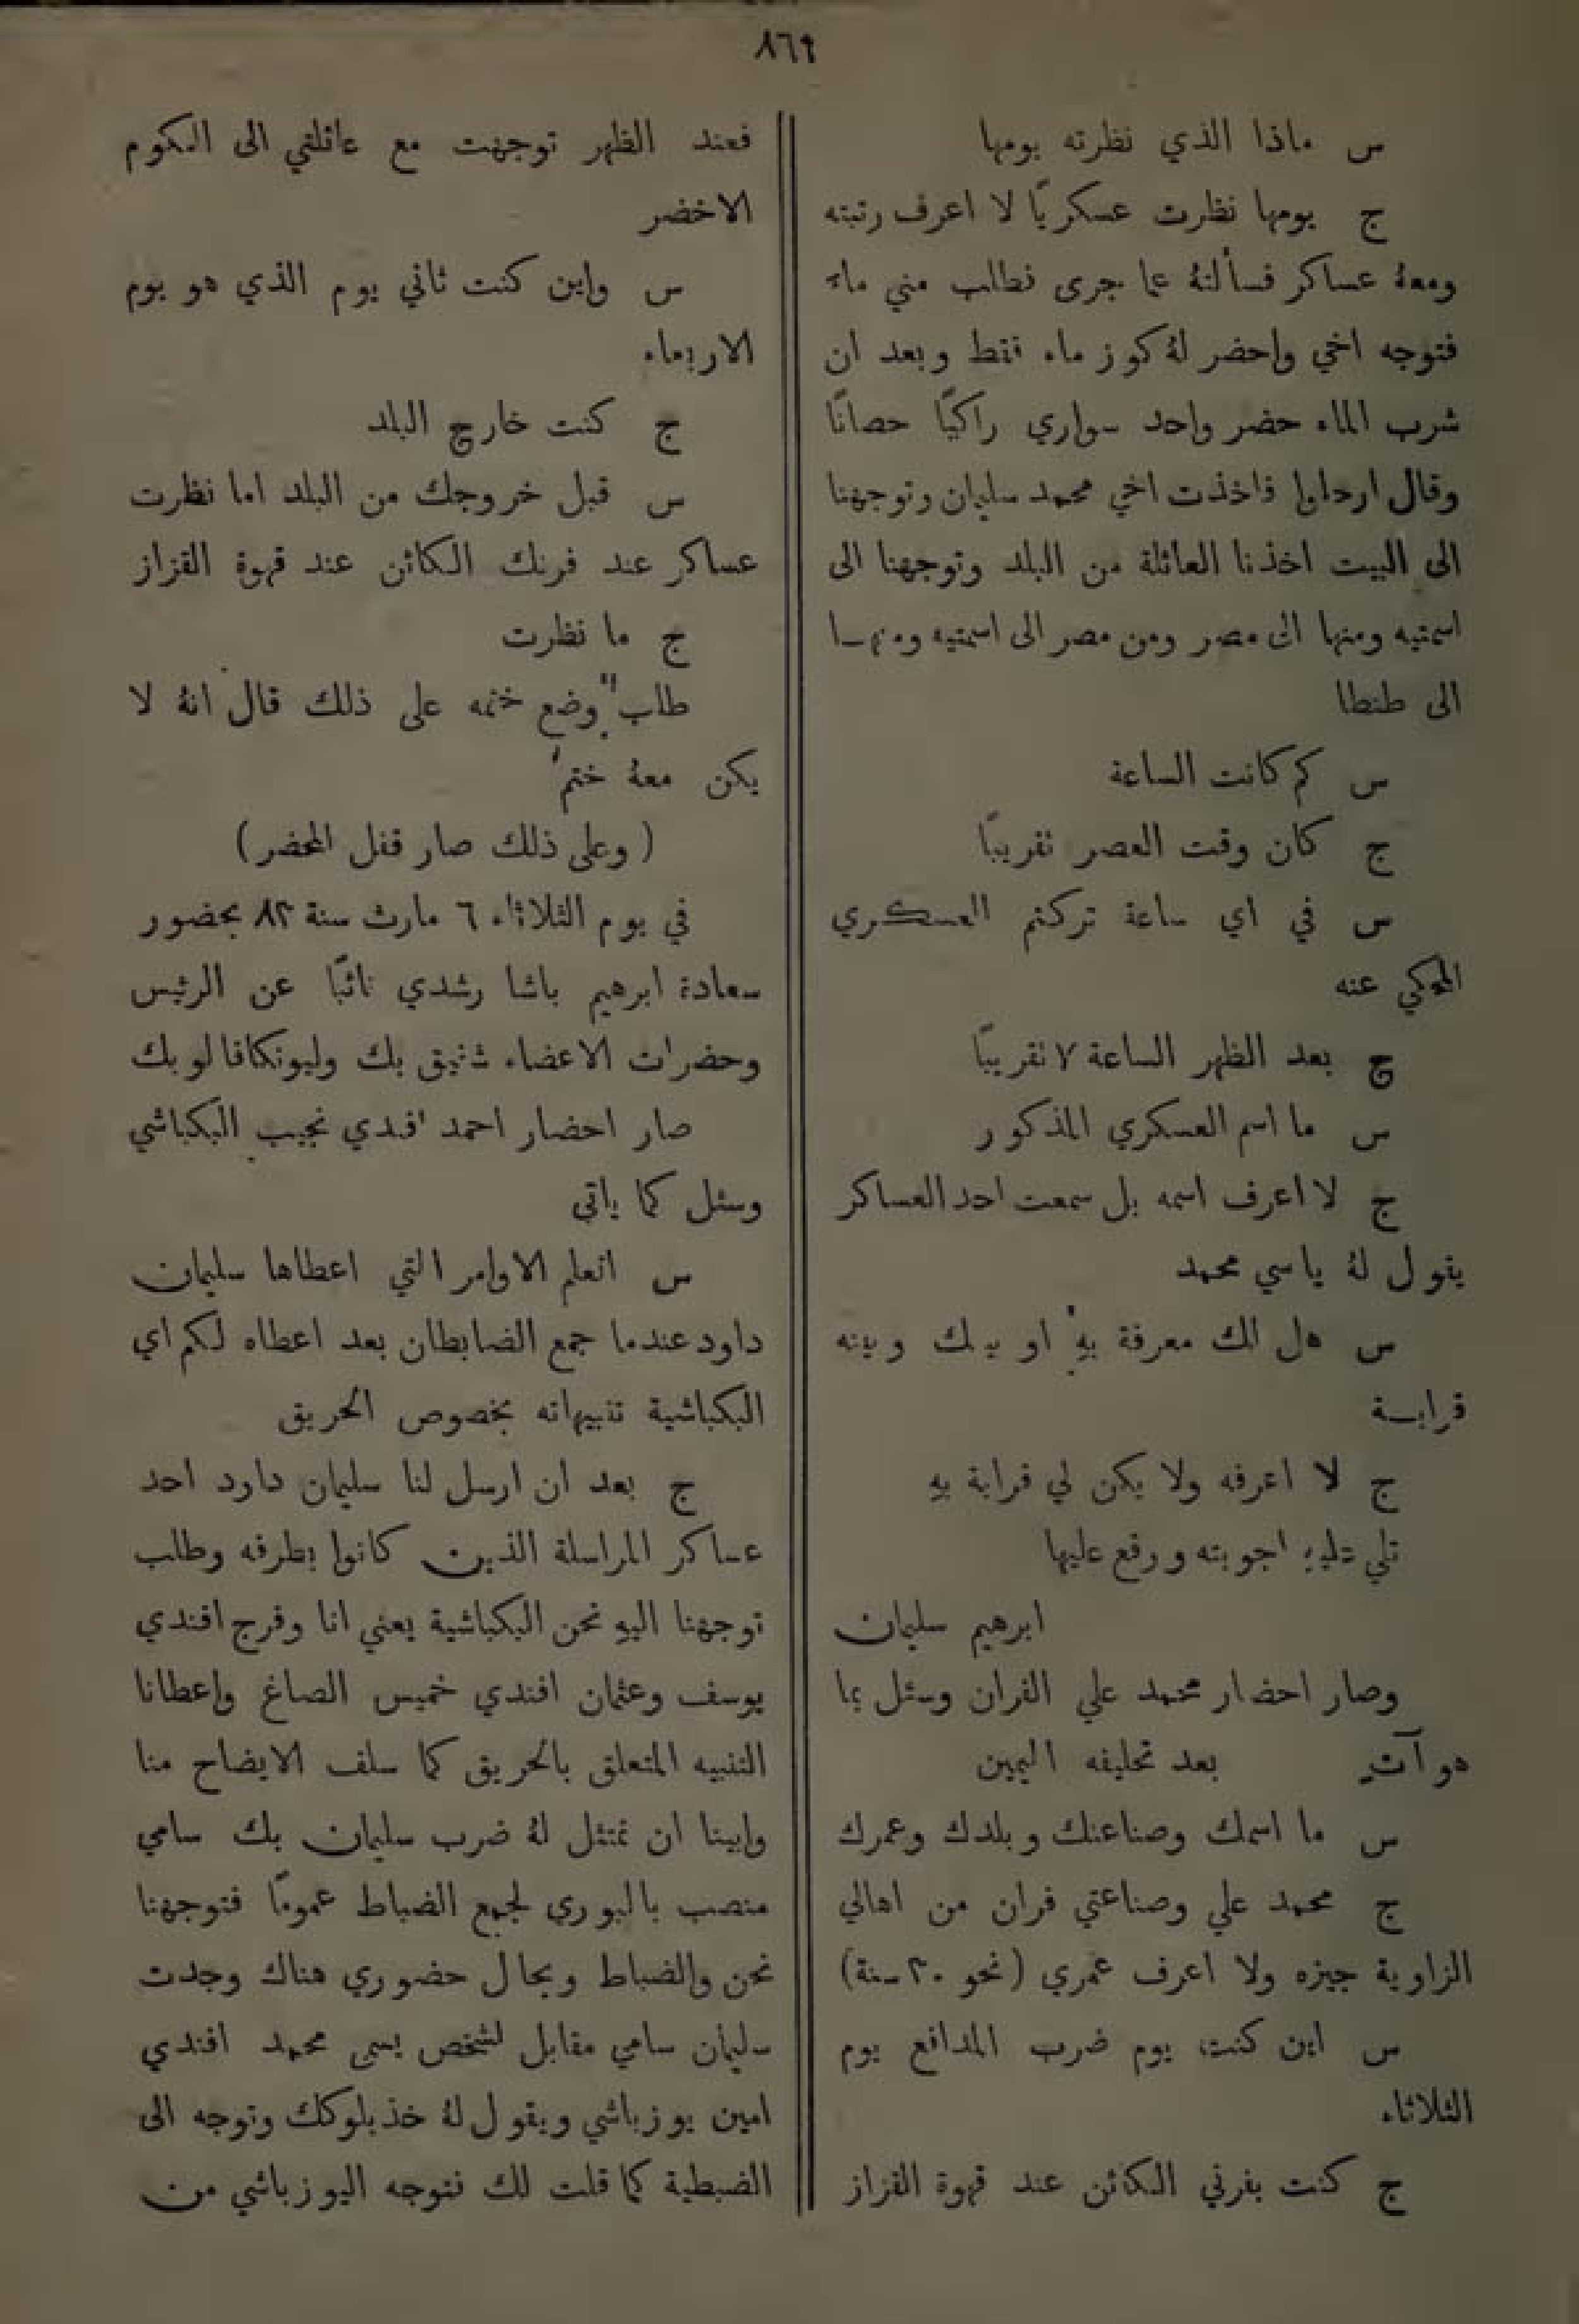 ٨٦٩
س ماذا الذي نظرته يومها
ج يومها نظرت عسكريًا لا اعرف رتبته
ومعهُ عساكر فسألتهُ عما جرى فطلب مني ماء
فتوجه اخي واحضر لهُ كوز ماء فقط وبعد ان
شرب الماء حضر واحد سواري راكبًا حصانًا
وقال ارحلوا فاخذت اخي محمد سليمان وتوجهنا
الى البيت اخذنا العائلة من البلد وتوجهنا الى
اسمتيه ومنها الى مصر ومن مصر الى اسمتيه ومنها
الى طنطا
س كم كانت الساعة
ج كان وقت العصر تقريبًا
س في اي ساعة تركتم العسكري
المحكي عنه
ج بعد الظهر الساعة ٧ تقريبًا
س ما اسم العسكري المذكور
ج لا اعرف اسمه بل سمعت احد العساكر
يقول لهُ ياسي محمد
س هل لك معرفة بهِ او بينك وبينه
قرابة
ج لا اعرفه ولا يكن لي قرابة بهِ
تلي عليهِ اجوبته ووقع عليها
ابرهيم سليمان
وصار احضار محمد علي الفران وسئل بما
هو آتٍ بعد تحليفه اليمين
س ما اسمك وصناعتك وبلدك وعمرك
ج محمد علي وصناعتي فران من اهالي
الزاوية جيزه ولا اعرف عمري (نحو ٢٠ سنة)
س اين كنت يوم ضرب المدافع يوم
الثلاثاء
ج كنت بفرني الكائن عند قهوة القزاز
فعند الظهر توجهت مع عائلتي الى الكوم
الاخضر
س واين كنت ثاني يوم الذي هو يوم
الاربعاء
ج كنت خارج البلد
س قبل خروجك من البلد اما نظرت
عساكر عند فرنك الكائن عند قهوة القزاز
ج ما نظرت
طلب وضع ختمه على ذلك قال انهُ لا
يكن معهُ ختم
(وعلى ذلك صار قفل المحضر)
في يوم الثلاثاء ٦ مارث سنة ٨٢ بحضور
سعادة ابرهيم باشا رشدي نائبًا عن الرئيس
وحضرات الاعضاء شفيق بك وليونكافالو بك
صار احضار احمد افندي نجيب البكباشي
وسئل كما ياتي
س اتعلم الاوامر التي اعطاها سليمان
داود عندما جمع الضابطان بعد اعطاه لكم اي
البكباشية تنبيهاته بخصوص الحريق
ج بعد ان ارسل لنا سليمان داود احد
عساكر المراسلة الذين كانوا بطرفه وطلب
توجهنا اليهِ نحن البكباشية يعني انا وفرج افندي
يوسف وعثمان افندي خميس الصاغ واعطانا
التنبيه المتعلق بالحريق كما سلف الايضاح منا
وابينا ان نمتثل لهُ ضرب سليمان بك سامي
منصب بالبوري لجمع الضباط عمومًا فتوجهنا
نحن والضباط وبحال حضوري هناك وجدت
سليمان سامي مقابل لشخص يسمى محمد افندي
امين يوزباشي ويقول لهُ خذ بلوكك وتوجه الى
الضبطية كما قلت لك فتوجه اليوزباشي من